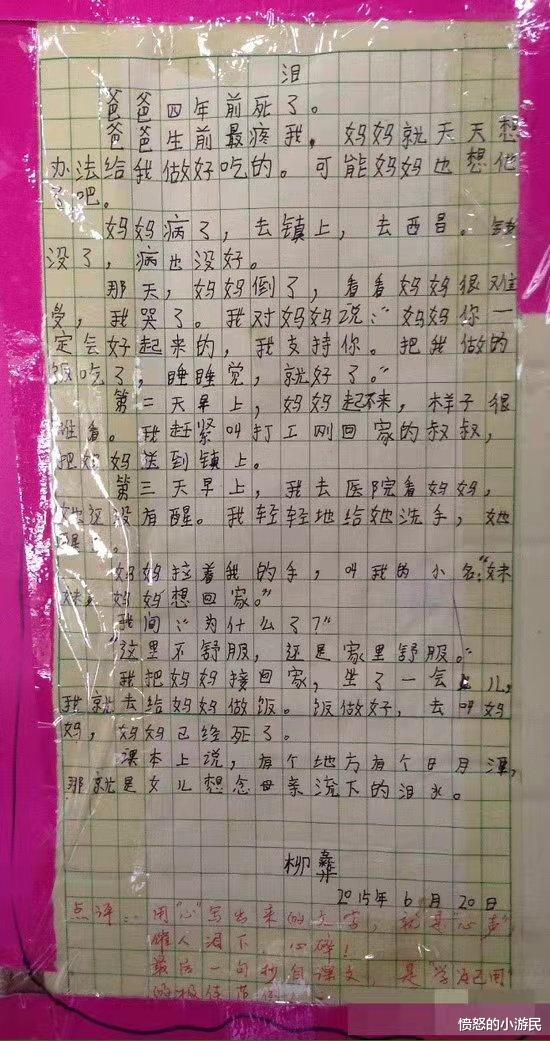 泪
爸爸四年前死了。
爸爸生前最疼我，妈妈就天天想
办法给我做好吃的。可能妈妈也想他
了吧。
妈妈病了，去镇上，去西昌。钱
没了，病也没好。
那天，妈妈倒了，看看妈妈很难
受，我哭了。我对妈妈说：“妈妈你一
定会好起来的，我支持你。把我做的
饭吃了，睡睡觉，就好了。”
第二天早上，妈妈起不来，样子很
难看。我赶紧叫打工刚回家的叔叔，
把妈妈送到镇上。
第三天早上，我去医院看妈妈，
她还没有醒。我轻轻地给她洗手，她
醒了。
妈妈拉着我的手，叫我的小名：“妹
妹，妈妈想回家。”
我问：“为什么了？”
“这里不舒服，还是家里舒服。”
我把妈妈接回家，坐了一会儿，
我就去给妈妈做饭。饭做好，去叫妈
妈，妈妈已经死了。
课本上说，有个地方有个日月潭，
那就是女儿想念母亲流下的泪水。
柳彝
2015年6月20日
点评：用“心”写出来的文字，就是“心声”
催人泪下，心碎！
最后一句抄自课文，是“学为己用”
的极佳范
愤怒的小游民